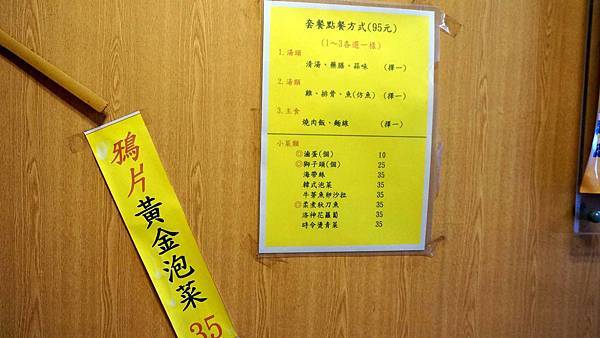 套餐點餐方式(95元)
(1～3各選一樣)
1.湯頭
清湯、藥膳、蒜味 (擇一)
2.湯類
雞、排骨、魚(仿魚) (擇一)
3.主食
燒肉飯、麵線 (擇一)
小菜類
◎滷蛋(個) 10
◎獅子頭(個) 25
海帶絲 35
韓式泡菜 35
牛蒡魚卵沙拉 35
◎柔煮秋刀魚 35
洛神花蘿蔔 35
時令燙青菜 35
鴉片黃金泡菜 35